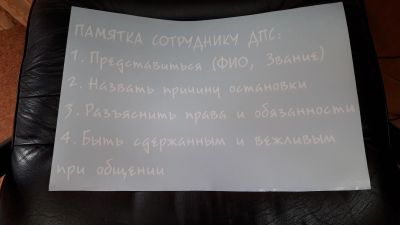 ПАМЯТКА СОТРУДНИКУ ДПС:
1. Представиться (ФИО, Звание)
2. Назвать причину остановки
3. Разъяснить права и обязанности
4. Быть сдержанным и вежливым
при общении